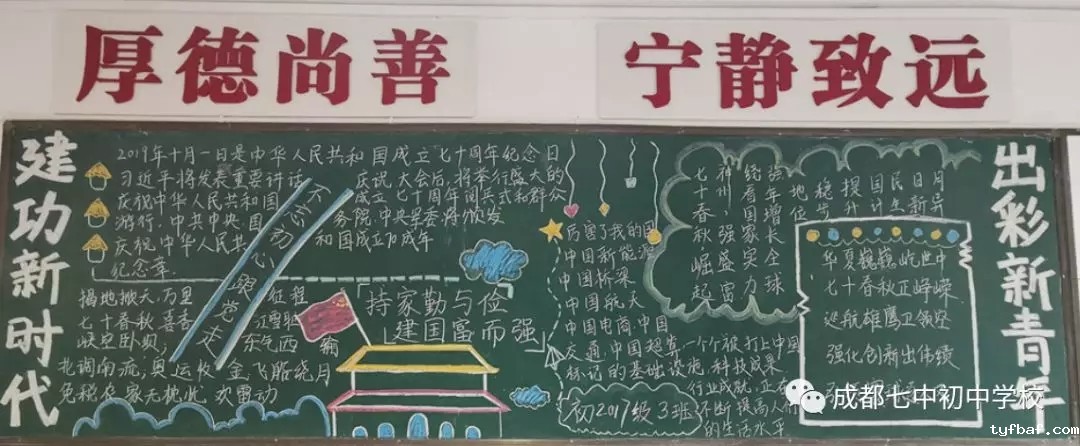 厚德尚善
宁静致远
建功新时代
2019年十月一日是中华人民共和国成立七十周年纪念日
习近平将发表重要讲话
庆祝大会后,将举行盛大的
庆祝中华人民共和国
成立七十周年阅兵式和群众
游行,中共中央国
务院,中央军委将颁发
庆祝中华人民共
和国成立70周年
纪念章.
不忘初心跟党走
揭地掀天,万里
征程
七十春秋
东气西
北调南流,奥运
金飞船绕月
免税农家无枕忧
欢雷动
持家勤与俭
建国富而强
厉害了我的国
中国新能源
中国桥梁
中国航天
中国电商,中国
交通,中国超算一个个被打上中国
标记的基础设施,科技成果
行业成就,正在
不断提高人们
的生活水平
初2017级3班
七十春秋崛起
神州看强盛富
统国家实力
强增长全球
地位
稳步
提升
国计
民生
日新
月异
华夏巍巍屹世中
七十春秋正峥嵘
巡航雄鹰卫领空
强化创新出伟绩
出彩新青年
成都七中初中学校
tyfbaf.com